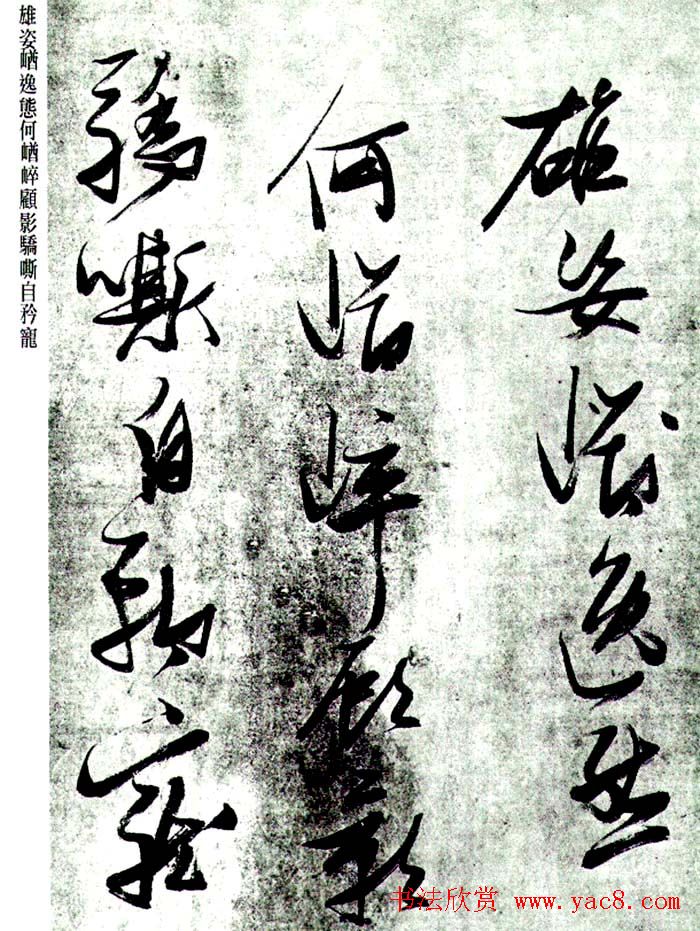 雄姿崷逸態
何崷崒顧影
驕嘶自矜寵
雄姿崷逸態何崷崒顧影驕嘶自矜寵
书法欣赏 www.yac8.com